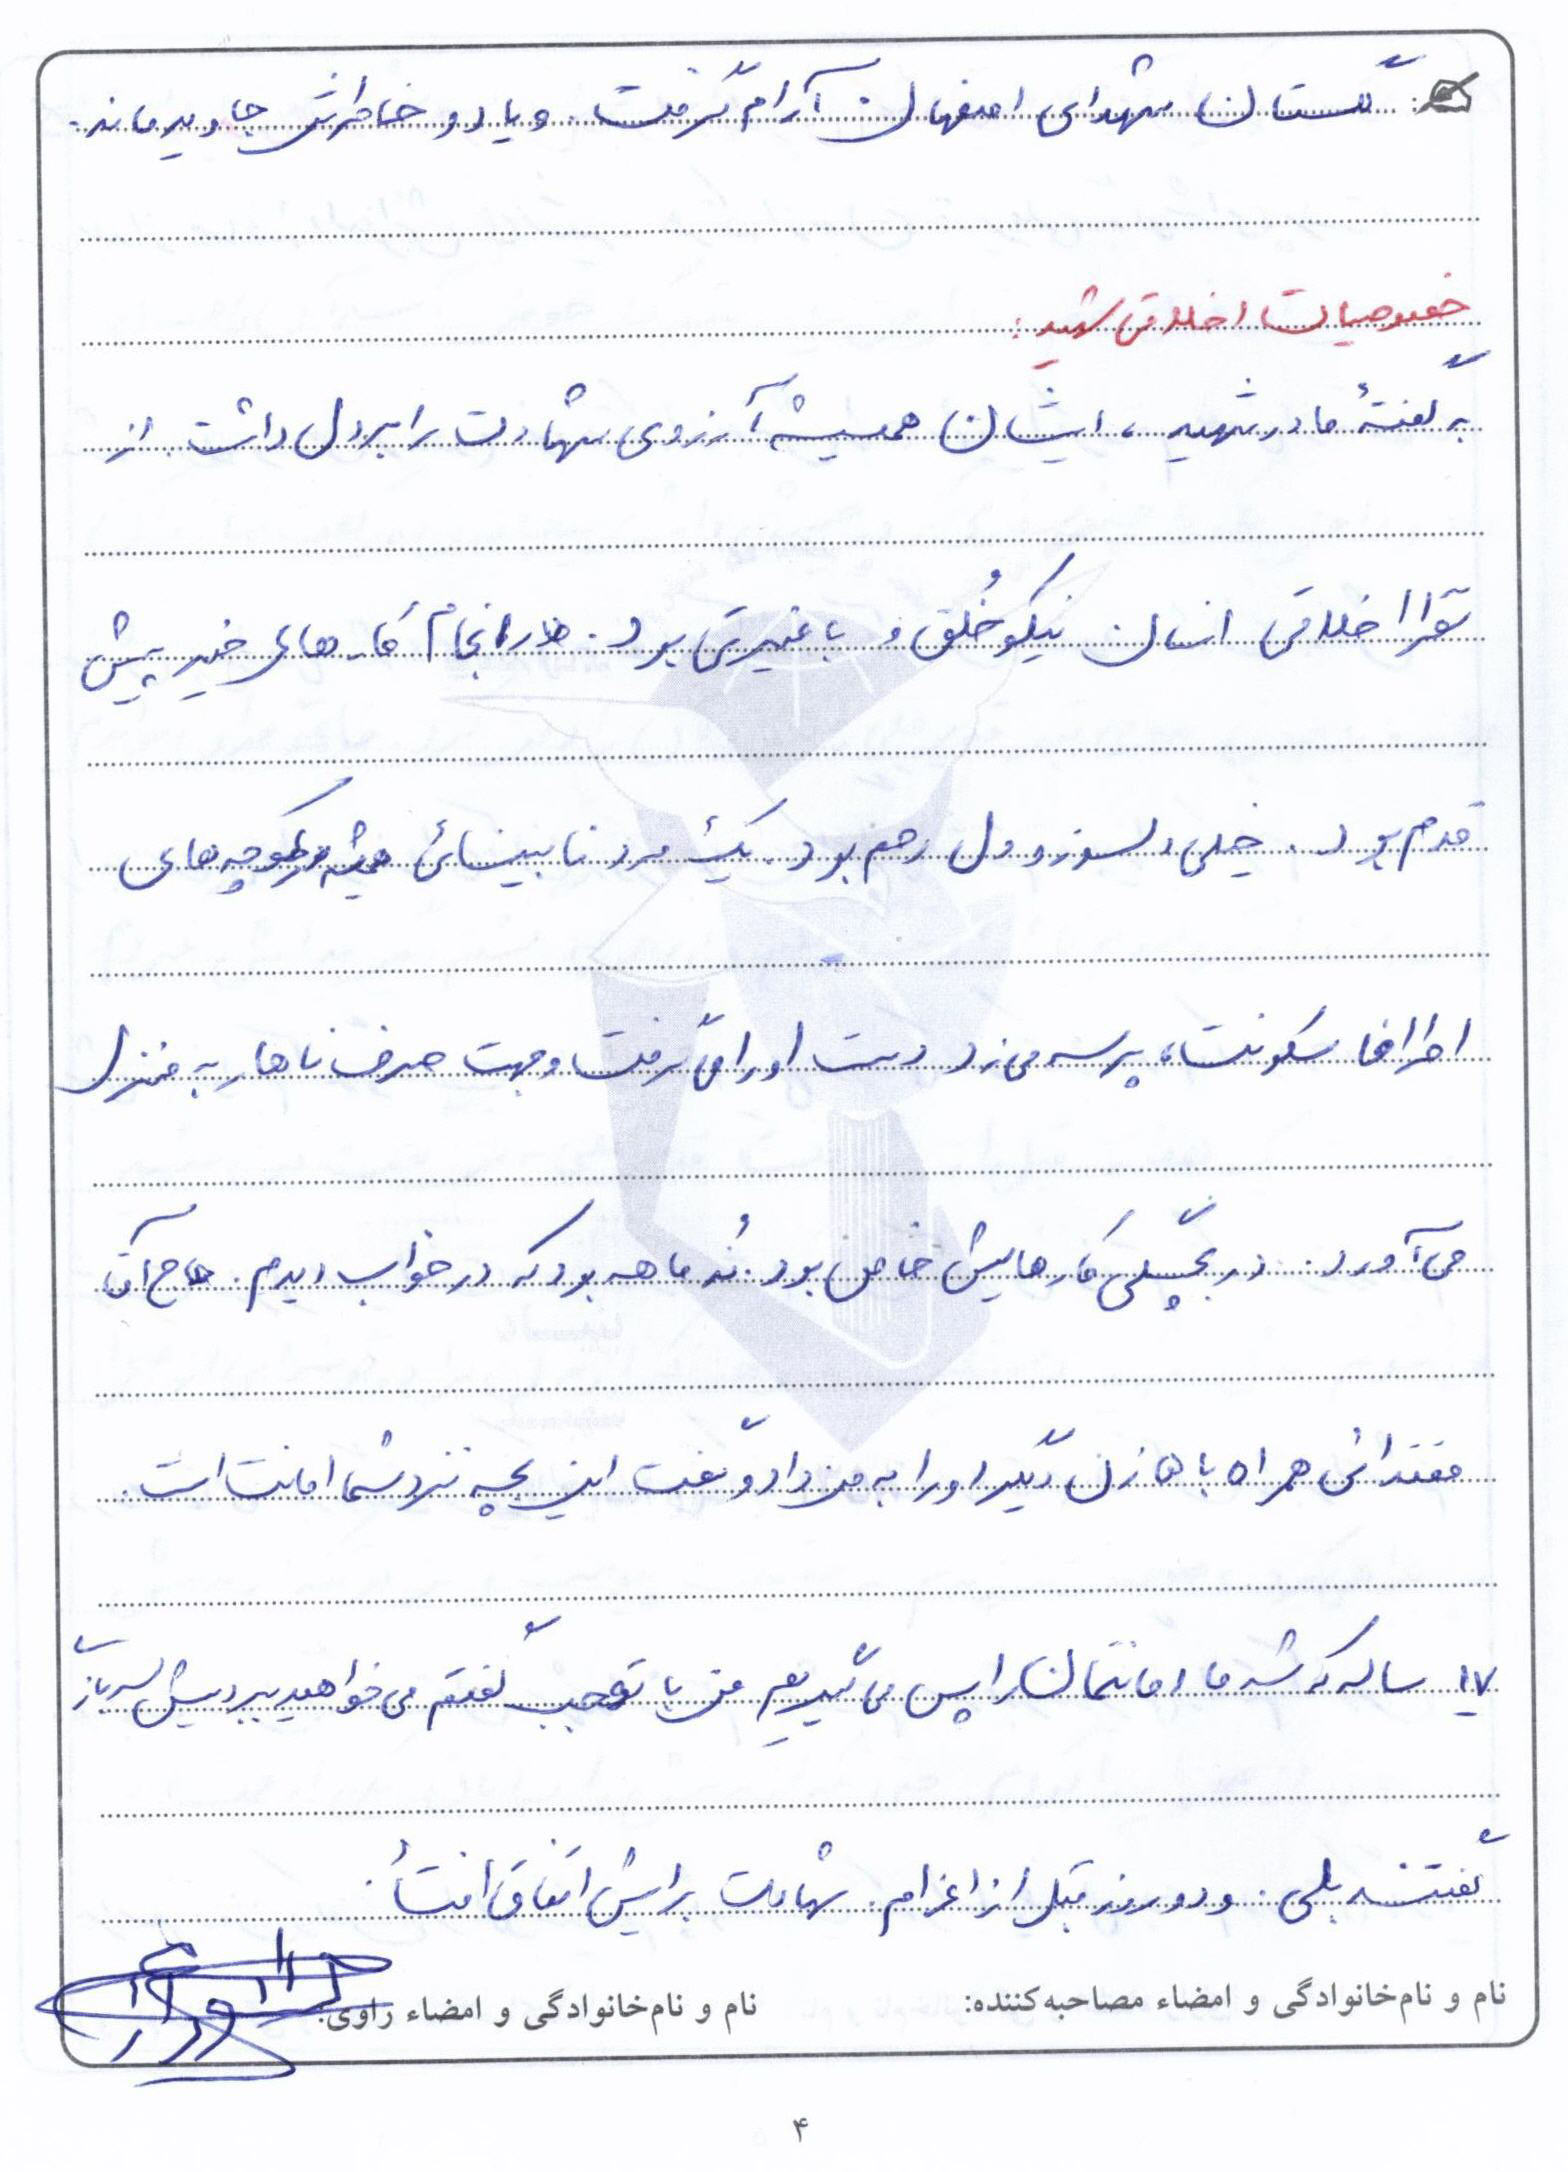 گلستان شهدای اصفهان آرام گرفت. و یاد و خاطرش جاوید ماند.
خصوصیات اخلاقی شهید:
به گفتهٔ مادر شهید، ایشان همیشه آرزوی شهادت را بر دل داشت. از
نظر اخلاقی انسان نیکو خُلق و با غیرتی بود. در انجام کارهای خیر پیش
قدم بود. خیلی دلسوز و دل رحم بود. یک مرد نابینائی همیشه در کوچه‌های
اطراف سکونت، پرسه می‌زد دست او را می‌گرفت و جهت صرف ناهار به منزل
می‌آورد. در بچگی کارهایش خاص بود. نُه ماهه بود که در خواب دیدم. حاج آقا
مقتدائی همراه با ۵ زن دیگر او را به من داد و گفت این بچه نزد شما امانت است.
۱۷ ساله که شد ما امانتمان را پس می‌گیریم من با تعجب گفتم می‌خواهید ببریدش سربازی
گفتند بلی. و دو روز قبل از اعزام. شهادت برایش اتفاق افتاد.
نام و نام‌خانوادگی و امضاء مصاحبه‌کننده: نام و نام‌خانوادگی و امضاء راوی:
۴